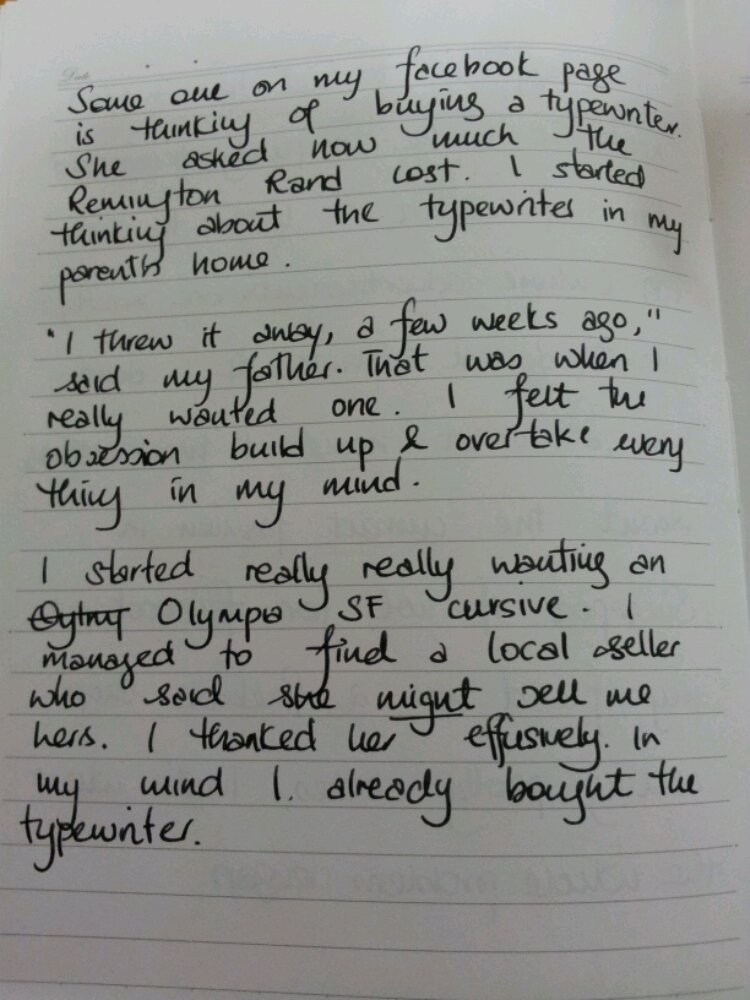 Date
Some one on my facebook page
is thinking of buying a typewriter.
She asked how much the
Remington Rand cost. I started
thinking about the typewriter in my
parent's home.
"I threw it away, a few weeks ago,"
said my father. That was when I
really wanted one. I felt the
obsession build up & overtake every
thing in my mind.
I started really really wanting an
Olympia SF cursive. I
managed to find a local seller
who said she might sell me
hers. I thanked her effusively. In
my mind I already bought the
typewriter.